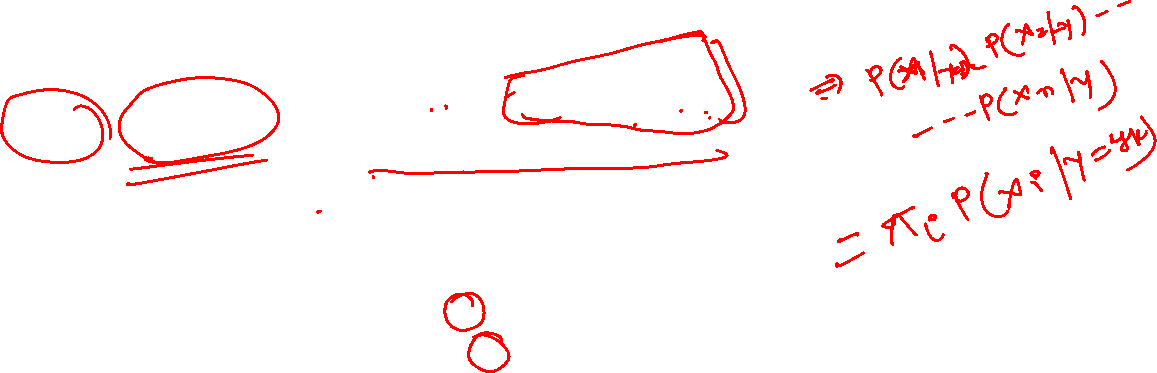 ⇒ P(x1|y) P(x2|y) - -
- - - - P(xn|y)
= πi P(xi|Y=yk)